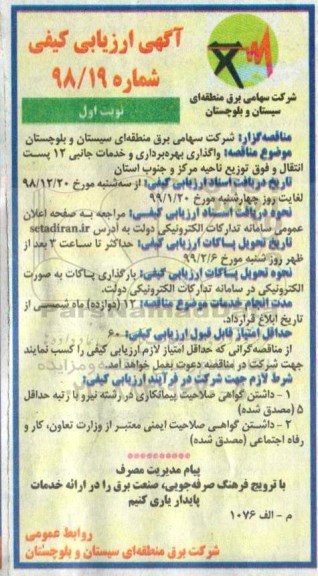 آگهی ارزیابی کیفی
شماره ۹۸/۱۹
نوبت اول
شرکت سهامی برق منطقه‌ای
سیستان و بلوچستان
مناقصه‌گزار: شرکت سهامی برق منطقه‌ای سیستان و بلوچستان
موضوع مناقصه: واگذاری بهره‌برداری و خدمات جانبی ۱۲ پست
انتقال و فوق توزیع ناحیه مرکز و جنوب استان
تاریخ دریافت اسناد ارزیابی کیفی: از سه‌شنبه مورخ ۹۸/۱۲/۲۰
لغایت روز چهارشنبه مورخ ۹۹/۱/۲۰
نحوه دریافت اسناد ارزیابی کیفی: مراجعه به صفحه اعلان
عمومی سامانه تدارکات الکترونیکی دولت به آدرس setadiran.ir
تاریخ تحویل پاکات ارزیابی کیفی: حداکثر تا ساعت ۳ بعد از
ظهر روز شنبه مورخ ۹۹/۲/۶
نحوه تحویل پاکات ارزیابی کیفی: بارگذاری پاکات به صورت
الکترونیکی در سامانه تدارکات الکترونیکی دولت.
مدت انجام خدمات موضوع مناقصه: ۱۲ (دوازده) ماه شمسی از
تاریخ ابلاغ قرارداد.
حداقل امتیاز قابل قبول ارزیابی کیفی: ۶۰
از مناقصه‌گرانی که حداقل امتیاز لازم ارزیابی کیفی را کسب نمایند
جهت شرکت در مناقصه دعوت بعمل خواهد آمد.
شرط لازم جهت شرکت در فرآیند ارزیابی کیفی:
۱ - داشتن گواهی صلاحیت پیمانکاری در رشته نیرو با رتبه حداقل
۵ (مصدق شده)
۲ - داشتن گواهی صلاحیت ایمنی معتبر از وزارت تعاون، کار و
رفاه اجتماعی (مصدق شده)
پیام مدیریت مصرف
با ترویج فرهنگ صرفه‌جویی، صنعت برق را در ارائه خدمات
پایدار یاری کنیم
م - الف ۱۰۷۶
روابط عمومی
شرکت برق منطقه‌ای سیستان و بلوچستان